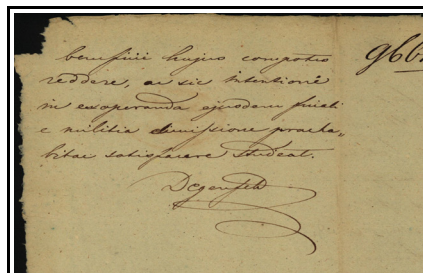 beneficii hujus compotes
reddere, ac sic intentioni
in exoperanda ejusdem
e militia dimissione praeha„
bitae satisfacere studeat.
Degenfeld